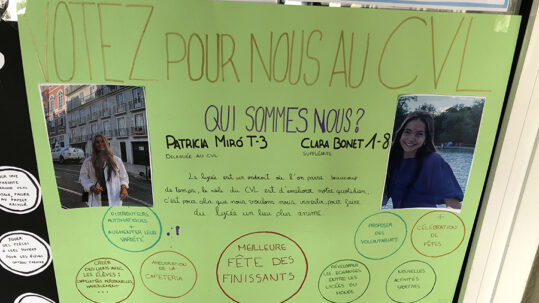 VOTEZ POUR NOUS AU CVL
QUI SOMMES NOUS?
PATRICIA MIRÓ T-3
DÉLÉGUÉE AU CVL
CLARA BONET 1-8
SUPPLÉANTE
Le lycée est un endroit où l'on passe beaucoup
de temps, le rôle du CVL est d'améliorer notre quotidien,
c'est pour cela que nous voulons nous investir pour faire
du lycée un lieu plus animé.
DISTRIBUTEURS
AUTOMATIQUES
+
AUGMENTER LEUR
VARIÉTÉ
CRÉER
DES LIENS AVEC
LES ÉLÈVES :
AMÉLIORATION DE LA
CAFÉTÉRIA
MEILLEURE
FÊTE DES
FINISSANTS
DÉVELOPPER
LES ÉCHANGES
ENTRE LES
LYCÉES DU
MONDE
PROPOSER
DES
VOLONTARIATS
+
CÉLÉBRATION DE
FÊTES
NOUVELLES
ACTIVITÉS
SPORTIVES